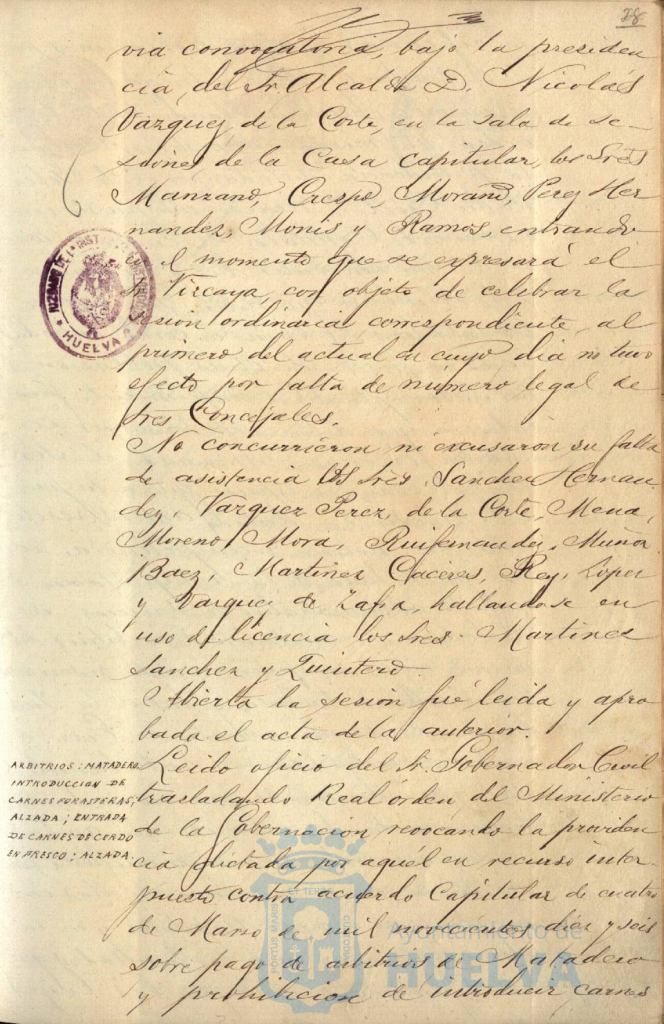 28
via convocatoria, bajo la presiden
cia del Sr. Alcalde D. Nicolás
Vazquez de la Corte, en la sala de se-
siones de la Casa capitular, los Sres
Manzano, Crespo, Morano, Perez Her
nandez, Monis y Ramos, entrando
en el momento que se expresará el
Sr. Vizcaya, con objeto de celebrar la
sesion ordinaria correspondiente al
primero del actual en cuyo dia no tuvo
efecto por falta de número legal de
Sres Concejales.
No concurrieron ni excusaron su falta
de asistencia los Sres. Sanchez Hernan
dez, Vazquez Perez, de la Corte, Mena,
Moreno Mora, Ruifernandez, Muñoz
Baez, Martinez Caceres, Rey, Lopez
y Vazquez de Zafra, hallandose en
uso de licencia los Sres. Martinez
Sanchez y Quintero.
Abierta la sesion fué leida y apro
bada el acta de la anterior.
ARBITRIOS: MATADERO
INTRODUCCION DE
CARNES FORASTERAS;
ALZADA; ENTRADA
DE CARNES DE CERDO
EN FRESCO; ALZADA.
Leido oficio del Sr. Gobernador Civil
trasladando Real orden del Ministerio
de la Gobernacion revocando la providen
cia dictada por aquél en recurso inter
puesto contra acuerdo Capitular de cuatro
de Marzo de mil novecientos diez y seis
sobre pago de arbitrios de Matadero
y prohibicion de introducir carnes
HUELVA
Ayuntamiento de
HUELVA